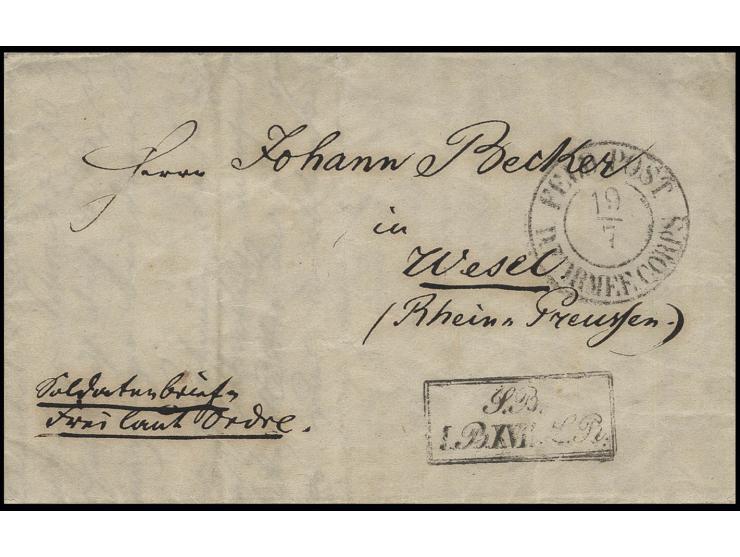 Herrn Johann Becker
in
Wesel.
(Rhein=Preussen.)
FELD-POST
19
7
ARMEE.CORPS
Soldatenbrief
frei laut Ordre.
S.B.
I.B.XVII.L.R.